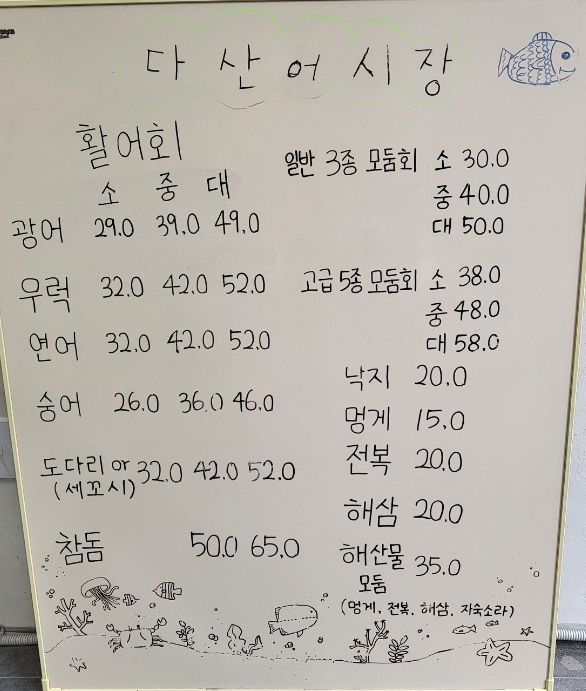 다산어시장
활어회
소 중 대
광어 29.0 39.0 49.0
우럭 32.0 42.0 52.0
연어 32.0 42.0 52.0
숭어 26.0 36.0 46.0
도다리 or 32.0 42.0 52.0
(세꼬시)
참돔 50.0 65.0
일반 3종 모둠회 소 30.0
중 40.0
대 50.0
고급 5종 모둠회 소 38.0
중 48.0
대 58.0
낙지 20.0
멍게 15.0
전복 20.0
해삼 20.0
해산물 35.0
모둠
(멍게, 전복, 해삼, 자숙소라)